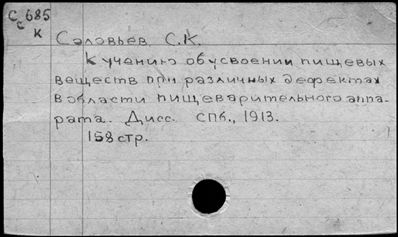 С 685
с
к
Соловьев С.К.
К учению об усвоении пищевых
веществ при различных дефектах
в области пищеварительного аппа-
рата. Дисс. СПб., 1913.
158 стр.